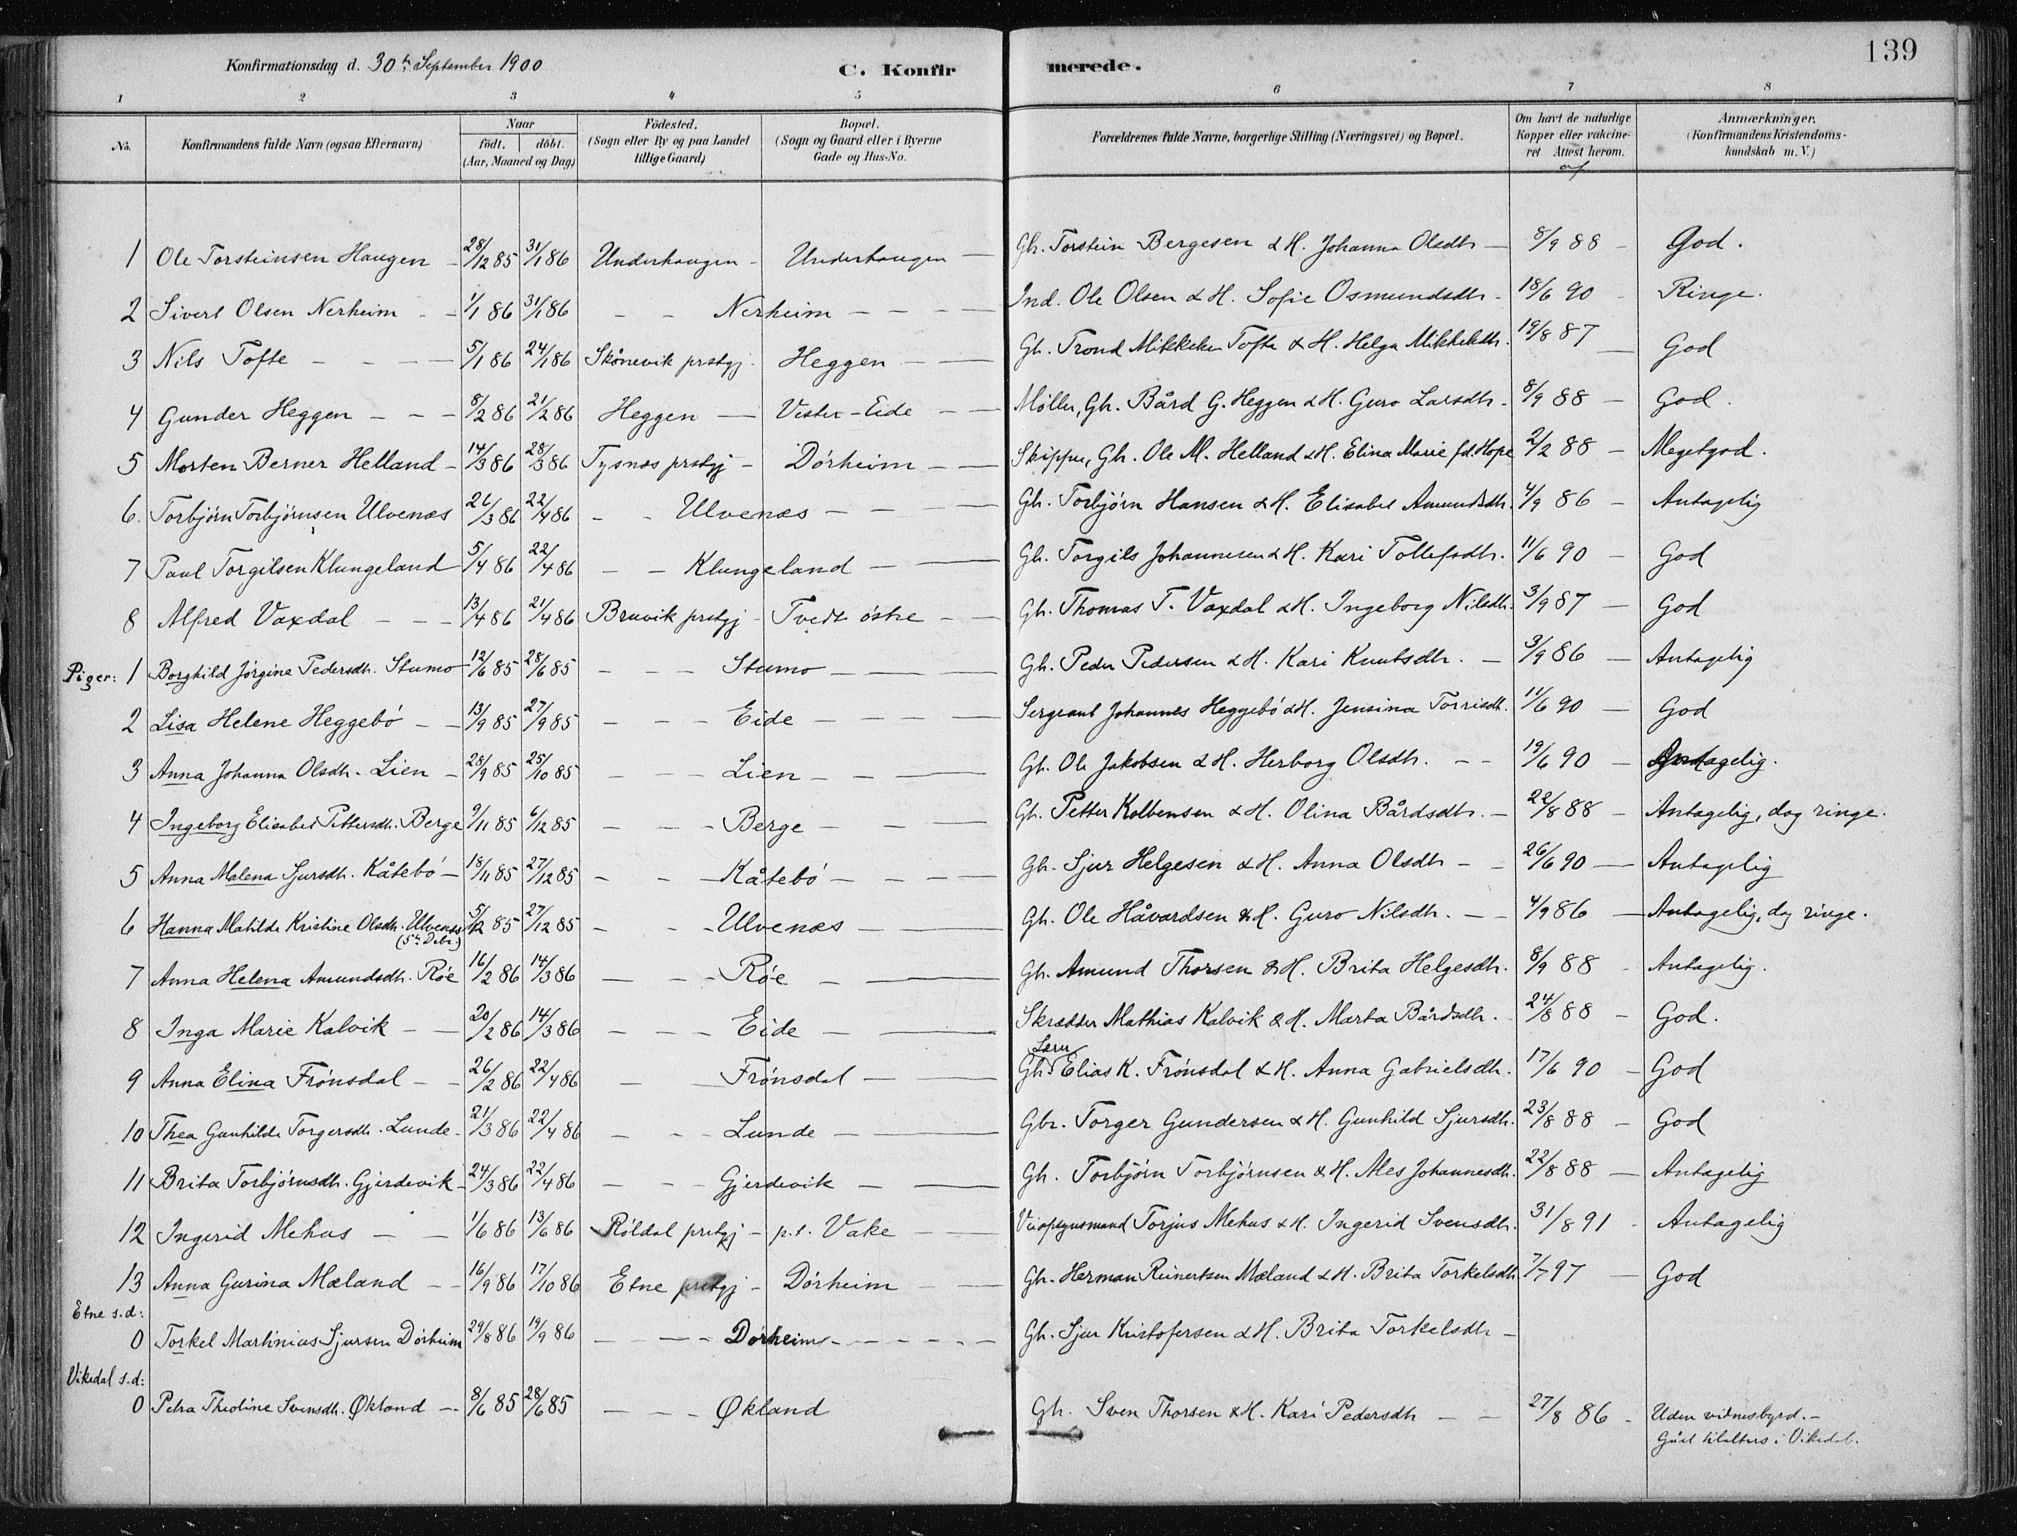 Konfirmationsdag d. 30te September 1900
C. Konfirmerede.
139
1 2 3 4 5 6 7 8
No.
Konfirmandens fulde Navn (ogsaa Efternavn)
Naar
födt. döbt.
(Aar, Maaned og Dag)
Födested.
(Sogn eller By og paa Landet
tillige Gaard)
Bopæl.
(Sogn og Gaard eller i Byerne
Gade og Hus-No.
Forældrenes fulde Navne, borgerlige Stilling (Næringsvei) og Bopæl.
Om havt de naturlige
Kopper eller vakcine-
ret Attest herom.
af
Anmærkninger.
(Konfirmandens Kristendoms-
kundskab m. V.)
1 Ole Torsteinsen Haugen - 28/12 85 31/1 86 Underhaugen - Underhaugen — Gbr. Torstein Bergesen & H. Johanna Olsdtr — 8/9 88 - God.
2 Sivert Olsen Nerheim - - 1/1 86 31/1 86 - - Nerheim - - - - Ind. Ole Olsen & H. Sofie Osmundsdtr - 18/6 90 - Ringe.
3 Nils Tofte - - - 5/1 86 24/1 86 Skånevik prstgj. Heggen - - Gbr. Trond Mikkelsen Tofte & H. Helga Mikkelsdtr. 19/8 87 — God
4 Gunder Heggen - - - 8/2 86 21/2 86 Heggen — Vestre-Eide - - Møller, Gbr. Bård G. Heggen & H. Guro Larsdtr. 8/9 88 - God.
5 Morten Berner Helland - 14/3 86 28/3 86 Tysnæs prstgj - Dörheim - - Skipper, Gbr. Ole M. Helland & H. Elina Marie fd. Hope 2/2 88 - Megetgod.
6. Torbjørn Torbjørnsen Ulvenæs 26/3 86 22/4 86 - - Ulvenæs - - - Gbr. Torbjørn Hansen & H. Elisabet Amundsdtr. 4/9 86 - Antagelig
7 Paul Torgilsen Klungeland 5/4 86 22/4 86 - - Klungeland - — Gbr. Torgils Johannesen & H. Kari Tollefsdtr. 11/6 90 - God
8 Alfred Vaxdal - - - 13/4 86 21/4 86 Bruvik prstgj - Tvedt östre - - Gbr. Thomas T. Vaxdal & H. Ingeborg Nilsdtr. 3/9 87 - God
Piger: 1 Borghild Jörgine Pedersdtr. Stumo 12/6 85 28/6 85 - - - Stumo - — Gbr. Peder Pedersen & H. Kari Knutsdtr. - 3/9 86 - Antagelig
2 Lisa Helene Heggebö - - 13/9 85 27/9 85 - - - Eide - — Sergeant Johannes Heggebö & H. Jensina Torrisdtr. 11/6 90 - God
3 Anna Johanna Olsdtr. Lien - 28/9 85 25/10 85 - - - Lien - - — Gbr. Ole Jakobsen & H. Herborg Olsdtr. - - 19/6 90 - Antagelig.
4 Ingeborg Elisabet Pettersdtr. Berge 9/11 85 6/12 85 - - - Berge - - — Gbr. Petter Kolbensen & H. Olina Bårdsdtr. - 22/8 88 - Antagelig, dog ringe.
5 Anna Malena Sjursdtr. Kåtebö - 18/11 85 27/12 85 - - - Kåtebö - - - - Gbr. Sjur Helgesen & H. Anna Olsdtr - - 26/6 90 - Antagelig
6 Hanna Matilde Kristine Olsdtr. Ulvenæs 5/12 85 27/12 85 - - - Ulvenæs - — Gbr. Ole Håvardsen & H. Guro Nilsdtr. - - 4/9 86 - Antagelig, dog ringe.
(5te Debr.)
7 Anna Helena Amundsdtr. Röe 16/2 86 14/3 86 - - - Röe - — Gbr. Amund Thorsen & H. Brita Helgesdtr. 8/9 88 - Antagelig.
8 Inga Marie Kalvik - - 20/2 86 14/3 86 - - - Eide - — Skrædder Mathias Kalvik & H. Marta Bårdsdtr. 24/8 88 - God.
Lærer
9 Anna Elina Frönsdal - - 26/2 86 22/4 86 - - Frönsdal - — Gbr. Elias K. Frönsdal & H. Anna Gabrielsdtr. 17/6 90 - God
10 Thea Gunhilde Torgersdtr. Lunde - 21/3 86 22/4 86 - - - Lunde - — Gbr. Torger Gundersen & H. Gunhild Sjursdtr. 23/8 88 - God
11 Brita Torbjörnsdtr. Gjerdevik - 24/3 86 22/4 86 - - - Gjerdevik - — Gbr. Torbjörn Torbjörnsen & H. Ales Johannesdtr. 22/8 88 - Antagelig
12 Ingerid Mehus - - 1/6 86 13/6 86 Röldal prstgj - p.t. Vake - - Veiopsynsmand Torjus Mehus & H. Ingerid Svensdtr. 31/8 91 - Antagelig
13 Anna Gurina Mæland - - 16/9 86 17/10 86 Etne prstgj - Dörheim - — Gbr. Herman Reinertsen Mæland & H. Brita Torkelsdtr 7/7 97 - God
Etne s.d:
0 Torkel Martinius Sjursen Dörheim 29/8 86 19/9 86 - - - Dörheim - - - - - Gbr. Sjur Kristofersen & H. Brita Torkelsdtr -
Vikedal s.d:
0 Petra Theoline Svensdtr. Økland - 8/6 85 28/6 85 - - - Økland Gbr. Sven Thorsen & H. Kari Pedersdtr - - 27/8 86 - Uden vidnesbyrd. -
Gået tilalters i Vikedal.